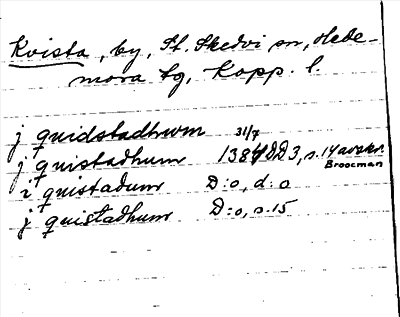 Kvista, by, St. Skedvi sn, Hede-
mora tg, Kopp. l.
j quidstadhwm
j quistadhum 31/7 1384 DD3, s. 14 avskr. Broocman
i quistadum D:o, d:o
j quistadhum D:o, s. 15